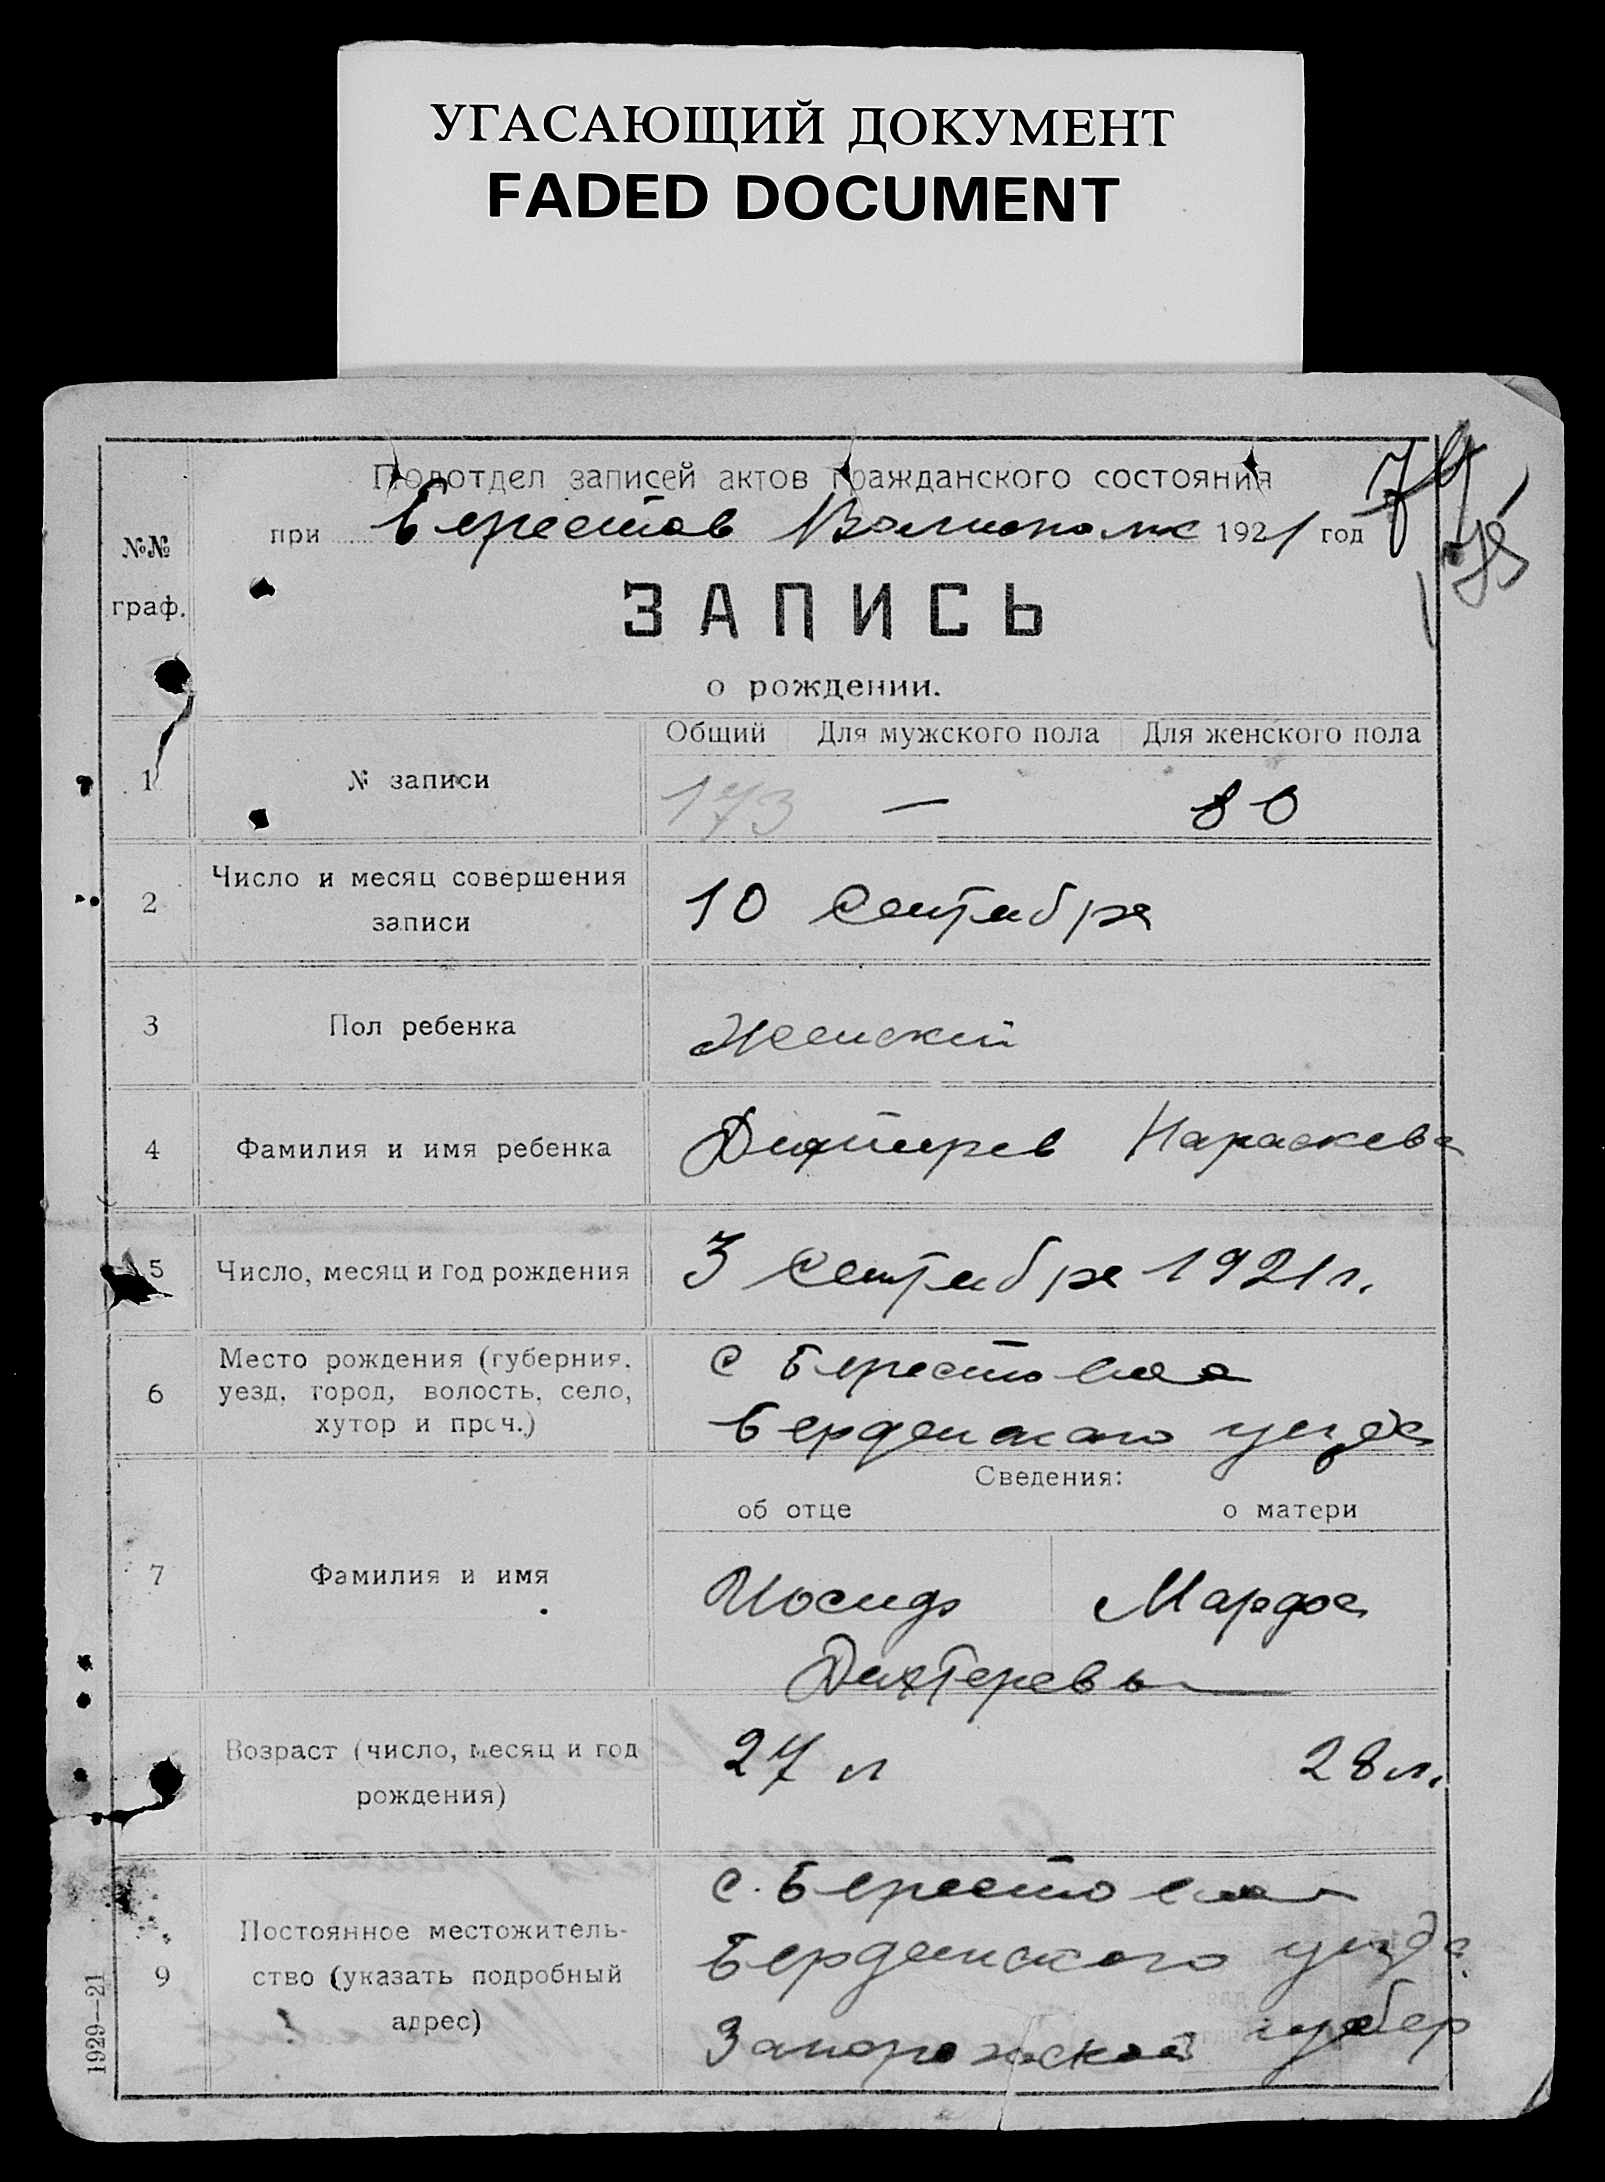 УГАСАЮЩИЙ ДОКУМЕНТ
FADED DOCUMENT
Подотдел записей актов гражданского состояния
при Берестов Волисполк 1921 год
79
№№
граф.
ЗАПИСЬ
о рождении.
Общий Для мужского пола Для женского пола
1 № записи 173 — 80
2 Число и месяц совершения
записи
10 Сентября
3 Пол ребенка Женский
4 Фамилия и имя ребенка Дихтирев Параскева
5 Число, месяц и год рождения 3 Сентября 1921 г.
6 Место рождения (губерния,
уезд, город, волость, село,
хутор и проч.)
с Берестовая
Бердянского уезда
Сведения:
об отце о матери
7 Фамилия и имя Иосиф Марфа
Дихтеревы
Возраст (число, месяц и год
рождения)
27 л 28 л.
9 Постоянное местожитель-
ство (указать подробный
адрес)
с. Берестовая
Бердянского уезда
Запорожской губер
1929—21